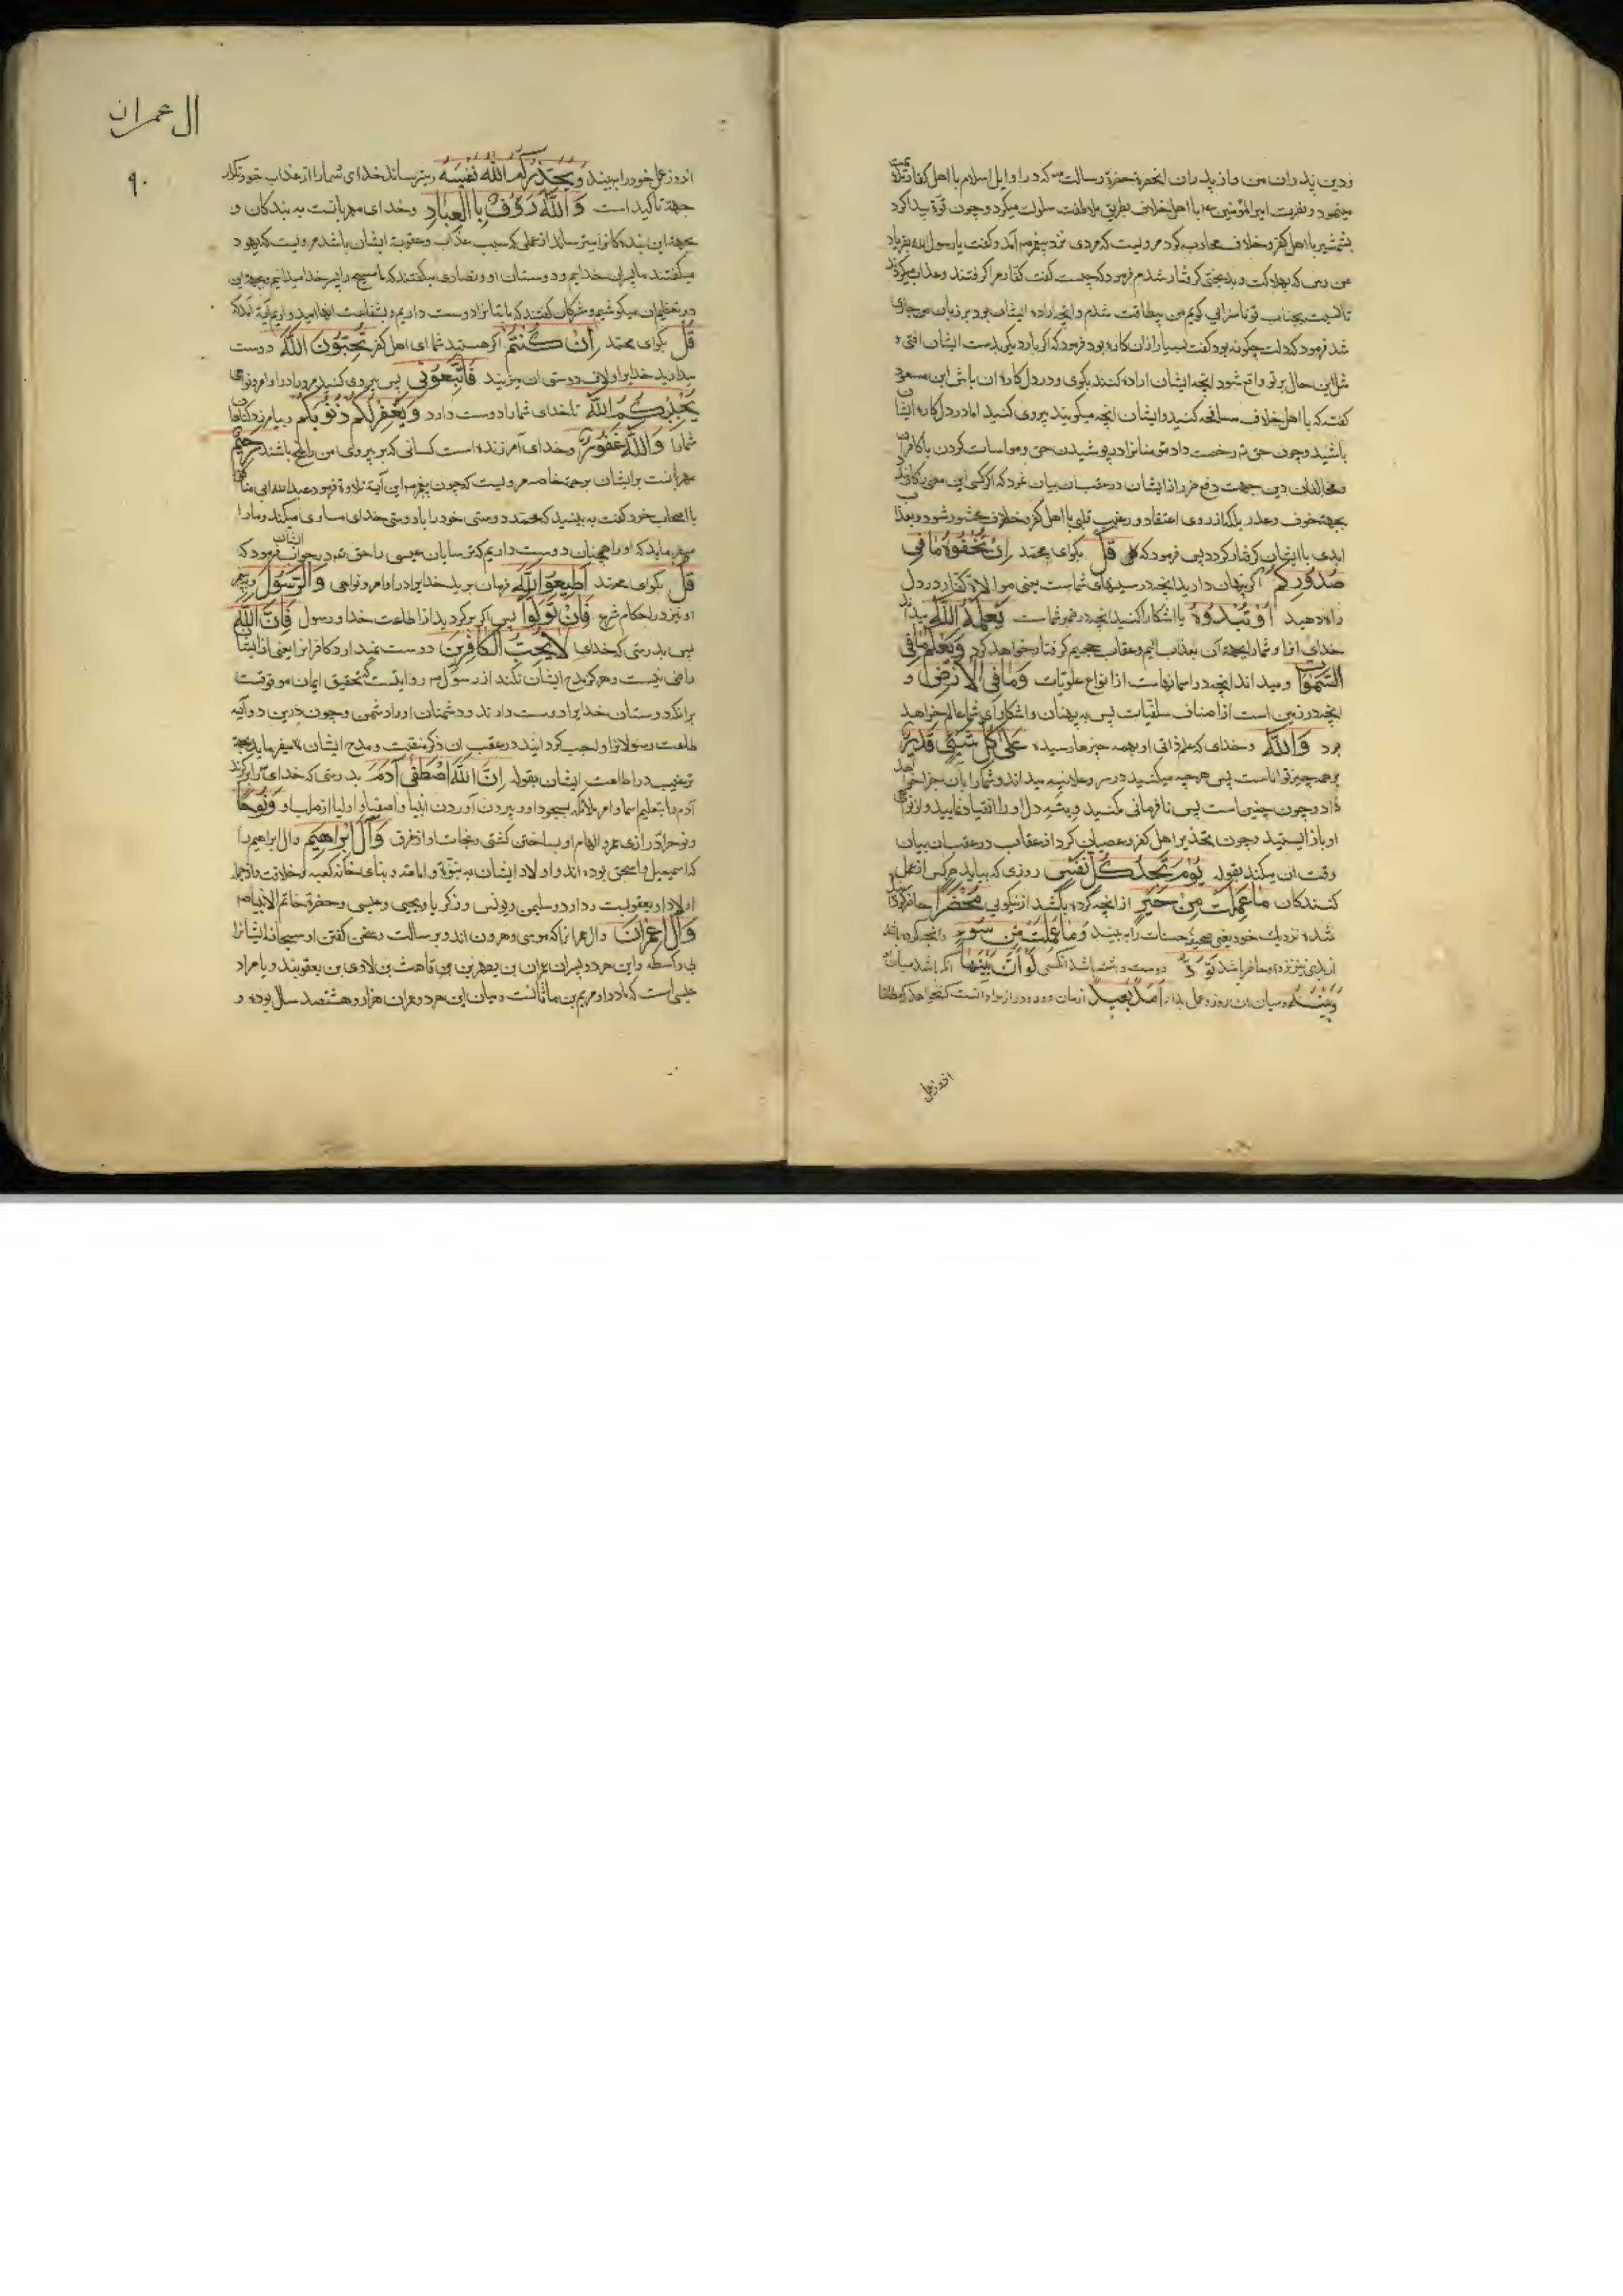 و دین پدران من و از پدران انحضرة حضرة رسالت که در اوایل اسلام با اهل کفار تقیة
مینمود و نفریت امیر المؤمنین با اهل خلاف بطریق ملاطفت سلوک میکرد و چون قوّة پیدا کرد
بشمشیر با اهل کفر و خلاف محاربه کرد مرویست که مردی نزد پیغمبر آمد و گفت یا رسول الله بفریاد
من رس که بهلاکت و بدبختی گرفتار شدم فرمود که چیست گفت کفار مرا گرفتند و عذاب میکردند
تا نسبت بجناب تو ناسزایی گویم من بیطاقت شدم و انچه اراده ایشان بود بر زبان من جاری
شد فرمود که دلت چگونه بود گفت بسیار از ان کاره بود فرمود که اگر بار دیگر بدست ایشان افتی و
مثل این حال بر تو واقع شود انچه ایشان اراده کنند بگوی و در دل کاره ان باش ابن مسعود
گفت که با اهل خلاف مسالحه کنید و ایشان انچه میگویند پیروی کنید اما در دل کاره ایشان
باشید و چون حق تع رخصت داد مؤمنانرا در پوشیدن حق و مواسات کردن با کافران
و مخالفان دین جهت دفع ضرر از ایشان در عقب ان بیان نمود که اگر کسی این معنی را
بجهة خوف و عذر بلکه از روی اعتقاد و رغبت قلبی با اهل کفر و خلاف محشور شود و بعذاب
ابدی با ایشان گرفتار گردد پس فرمود که قُلْ بگوی محمد اِنْ تُخْفُوا مَا فِی
صُدُورِکُمْ اگر پنهان دارید انچه در سینهای شماست یعنی موالات کفار در دل
راه دهید اَوْ تُبْدُوهُ یا اشکار کنید انچه در ضمیر شماست یَعْلَمْهُ اللّٰهُ میداند
خدای انرا و شما را بجهة ان بعذاب الیم و عقاب جحیم گرفتار خواهد کرد وَیَعْلَمُ مَا فِی
السَّمٰوَاتِ و میداند انچه در اسمانهاست از انواع علویات وَمَا فِی الْاَرْضِ و
انچه در زمین است از اصناف سفلیات پس به پنهان و اشکارای شما عالم خواهد
بود وَاللّٰهُ و خدای که علم ذاتی او بهمه چیزها رسیده عَلٰی کُلِّ شَیْءٍ قَدِیرٌ
بر همه چیز تواناست پس هر چه میکنید در سر و علانیه میداند و شما را بان جزا خواهد
داد و چون چنین است پس نافرمانی مکنید و بته دل او را انقیاد نمایید و از نواهی
او باز ایستید و چون تحذیر اهل کفر و عصیان کرد از عقاب در عقب ان بیان
وقت ان میکند بقوله یَوْمَ تَجِدُ کُلُّ نَفْسٍ روزی که بیابد هر کس از عمل
کنندگان مَا عَمِلَتْ مِنْ خَیْرٍ از انچه کرده باشد از نیکویی مُحْضَرًا حاضر کرده
شده نزدیک خود یعنی صحیفه حسنات را ببیند وَمَا عَمِلَتْ مِنْ سُوءٍ و انچه کرده باشد
از بدی نیز نزد او حاضر باشد تَوَدُّ دوست داشته باشد انکس لَوْ اَنَّ بَیْنَهَا اگر باشد میان
وَبَیْنَهُ و میان ان روز و عمل بد اَمَدًا بَعِیدًا زمان دور و دراز
اندروز عمل
ال عمران
۹۰
اندروز عمل خود را ببیند وَیُحَذِّرُکُمُ اللّٰهُ نَفْسَهُ و میترساند خدای شما را از عذاب خود تکرار
جهة تاکید است وَاللّٰهُ رَؤُفٌ بِاالْعِبَادِ و خدای مهربانست به بندگان و
بجهة این بندگانرا میترساند از عملی که سبب عذاب و عقوبة ایشان باشد مرویست که یهود
میگفتند ما پسران خداییم و دوستان او و نصاری میگفتند که ما مسیح را پسر خدا میدانیم و بجهة این
در تعظیم ان میکوشیم و مشرکان گفتند که ما بتانرا دوست داریم و بشفاعت انها امیدواریم آیة امد که
قُلْ بگوی محمد اِنْ کُنْتُمْ اگر هستید شما ای اهل کفر تُحِبُّونَ اللّٰهَ دوست
میدارید خدایرا و لاف دوستی ان میزنید فَاتَّبِعُونِی پس پیروی کنید مرا در اوامر و نواهی
یُحْبِبْکُمُ اللّٰهُ تا خدای شما را دوست دارد وَیَغْفِرْ لَکُمْ ذُنُوبَکُمْ و بیامرزد گناهان
شما را وَاللّٰهُ غَفُورٌ و خدای آمرزنده است کسانی که بر پیروی من راسخ باشند رَحِیمٌ
مهربانست بر ایشان برحمة خاصه مرویست که چون پیغمبر این آیة تلاوة فرمود عبد الله ابی منافق
با اصحاب خود گفت به بینید که محمد دوستی خود را با دوستی خدای مساوی میکند و ما را
میفرماید که او را همچنان دوست داریم که ترسایان عیسی را حق تع در جواب ایشان فرمود که
قُلْ بگوی محمد اَطِیعُوا اللّٰهَ فرمان برید خدایرا در اوامر و نواهی وَالرَّسُولَ و پیغمبر
او نیز در احکام شرع فَاِنْ تَوَلَّوْا پس اگر برگردید از اطاعت خدا و رسول فَاِنَّ اللّٰهَ
پس بدرستی که خدای لَا یُحِبُّ الْکَافِرِینَ دوست نمیدارد کافرانرا یعنی از ایشان
راضی نیست و هرگز مدح ایشان نکند از رسول روایتست که تحقیق ایمان موقوفست
برانکه دوستان خدایرا دوست دارند و دشمنان او را دشمن و چون درین دو آیه
طاعت رسولانرا واجب گردانید در عقب ان ذکر منقبت و مدح ایشان میفرماید بجهة
ترغیب در اطاعت ایشان بقوله اِنَّ اللّٰهَ اصْطَفٰی آدَمَ بدرستی که خدای برگزید
آدم را بتعلیم اسما و امر ملائکه بسجود او و بیرون آوردن انبیا و اصفیا و اولیا از صلب او وَنُوحًا
و نوح را بدرازی عمر و الهام او بساختن کشتی و نجات او از غرق وَآلَ اِبْرَاهِیمَ و ال ابراهیم را
که اسمعیل و اسحق بوده اند و اولاد ایشان به نبوّة و امامة و بنای خانه کعبه و خلافت و از جمله
اولاد او یعقوبست و داود و سلیمن و یونس و زکریا و یحیی و عیسی و حضرة خاتم الانبیاء
وَآلَ عِمْرَانَ و ال عمرانرا که موسی و هرون اند و برسالت و سخن گفتن او سبحانه ایشانرا
بی واسطه و این هر دو پسران عمران بن یصهر بن قاهث بن لاوی بن یعقوبند و یا مراد
عیسی است که مادر او مریم بن ماثانست و میان این هر دو عمران هزار و هشتصد سال بوده و